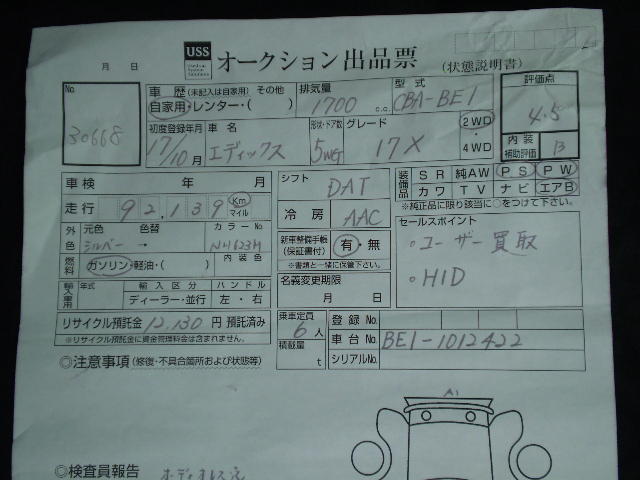 USS オークション 出品票 (状態説明書)
月 日
No. 30668
車 歴 (未記入は自家用) その他
自家用・レンター・( )
排気量 1700 c.c.
型式 CBA-BE1
評価点 4.5
内装補助評価 B
初度登録年月 17/10月
車名 エディックス
形状・ドア数 5WG
グレード 17X
2WD・4WD
車検 年 月
シフト DAT
装備品 SR 純AW PS PW
カワ TV ナビ エアB
※純正品に限り該当に○をつけて下さい。
走行 92,139 Km マイル
冷房 AAC
セールスポイント
・ユーザー買取
・HID
外色 元色 色替 カラーNo.
シルバー → NH623M
新車整備手帳(保証書付) 有・無
※書類と一緒に保管下さい。
燃料 ガソリン・軽油・( ) 内装色
輸入車用 年式 輸入区分 ハンドル
ディーラー・並行 左・右
名義変更期限
月 日
リサイクル預託金 12,130 円 預託済み
※リサイクル預託金に資金管理料金は含まれません。
乗車定員 6人
積載量 t
登録No.
車台No. BE1-1012422
シリアルNo.
◎注意事項 (修復・不具合箇所および状態等)
A1
◎検査員報告